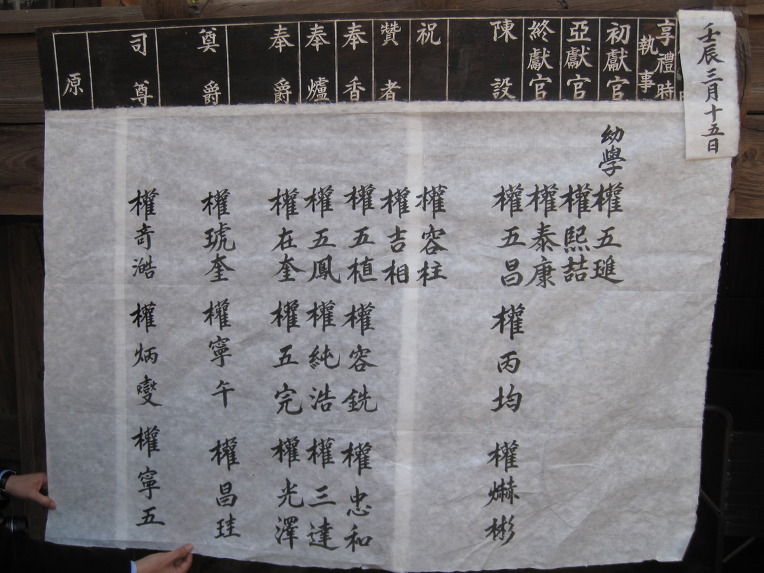 壬辰三月十五日
享禮時
執事
初獻官
亞獻官
終獻官
陳設
祝
贊者
奉香
奉爐
奉爵
奠爵
司尊
原
幼學 權五璡
權熙喆
權泰康
權五昌 權丙均 權爀彬
權容柱
權吉相
權五植 權容銑 權忠和
權五鳳 權純浩 權三達
權在奎 權五完 權光澤
權琥奎 權寧午 權昌珪
權奇澔 權炳燮 權寧五